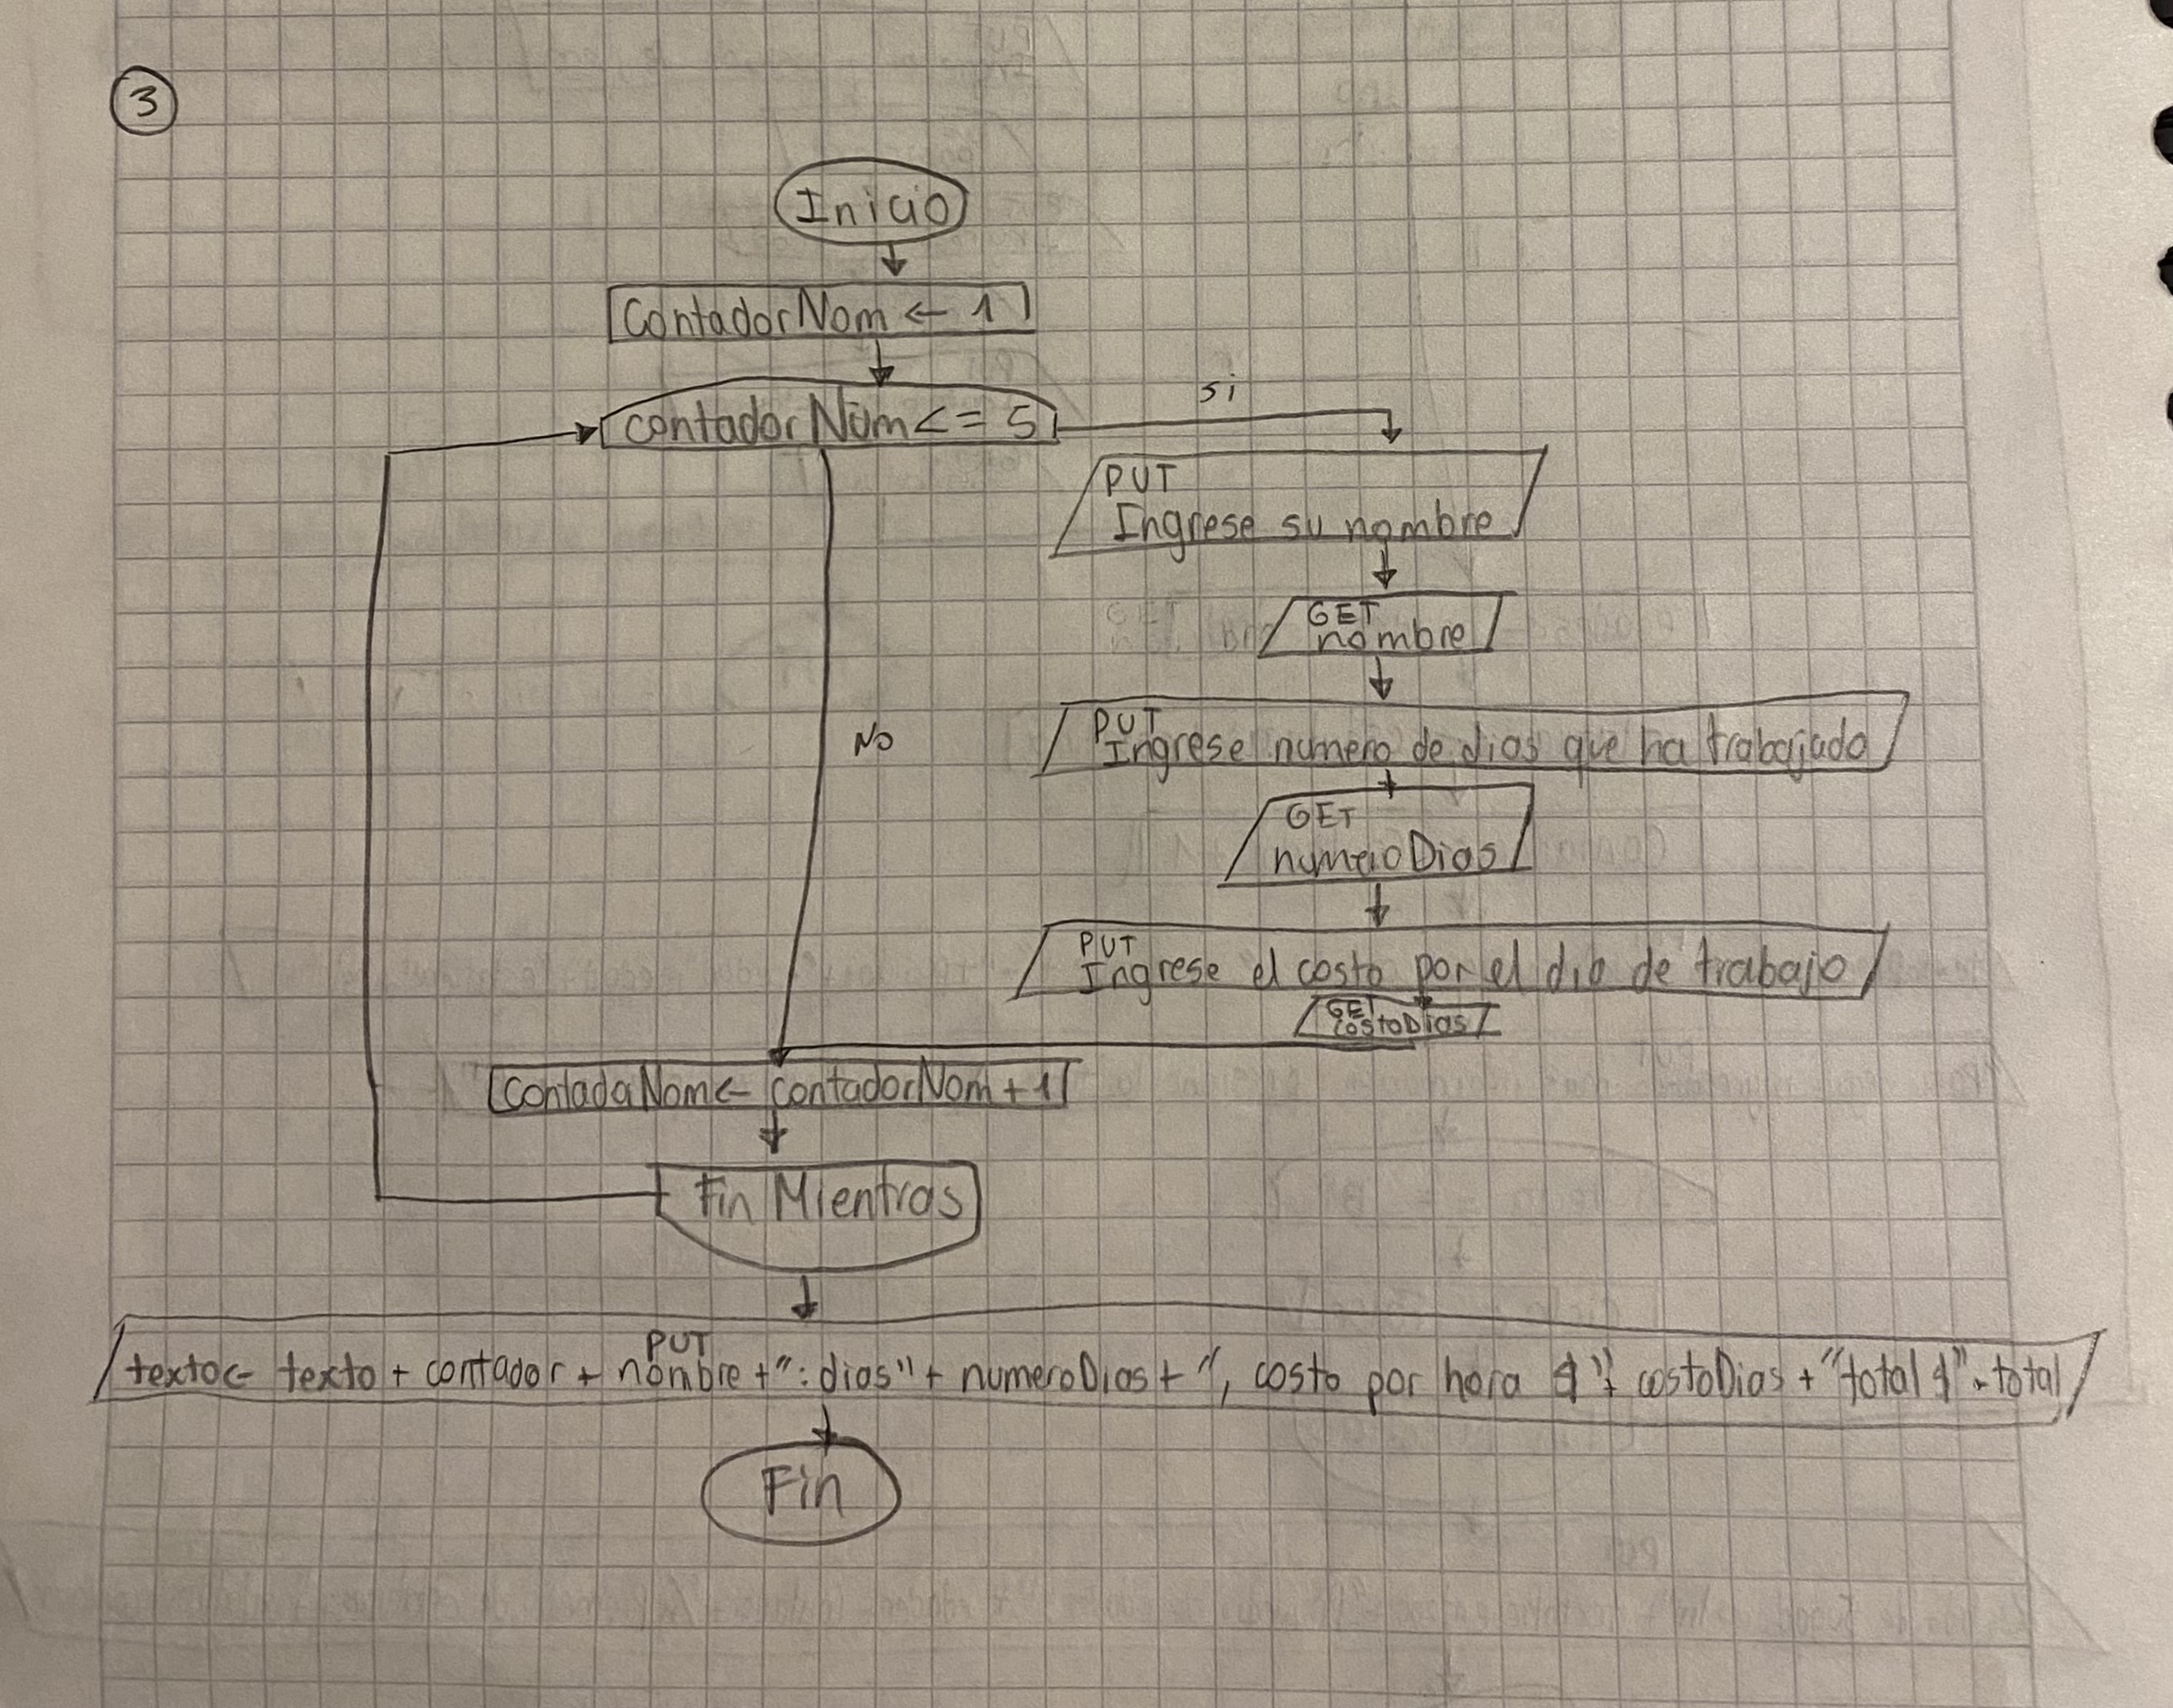 3
Inicio
ContadorNom ← 1
contadorNum <= 5
si
PUT
Ingrese su nombre
GET
nombre
PUT
Ingrese numero de dias que ha trabajado
No
GET
numeroDias
PUT
Ingrese el costo por el dia de trabajo
GET
costoDias
ContadaNom ← contadorNom + 1
Fin Mientras
PUT
texto ← texto + contador + nombre + ": dias" + numeroDias + ", costo por hora $" + costoDias + "total $" + total
Fin